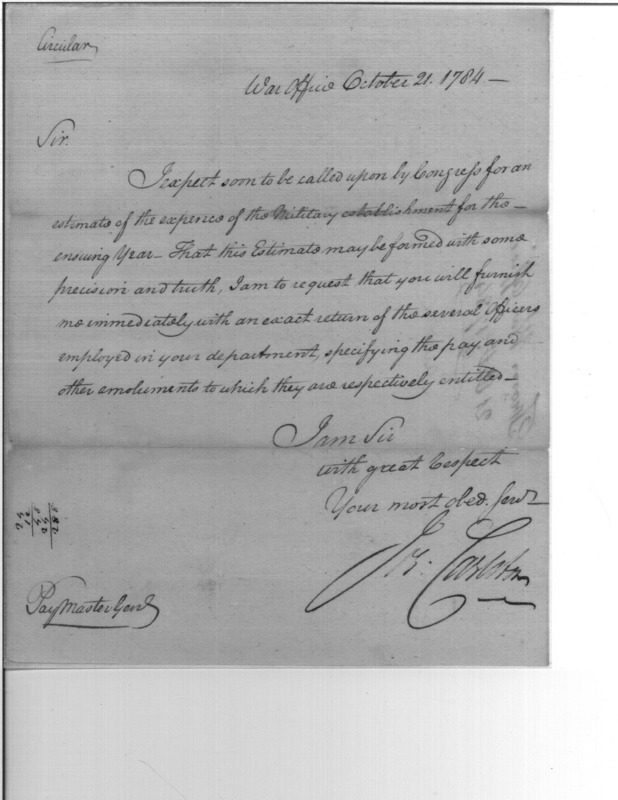 Circular
War Office October 21. 1784 —
Sir.
I expect soon to be called upon by Congress for an
estimate of the expence of the Military establishment for the —
ensuing Year — That this Estimate may be formed with some
precision and truth, I am to request that you will furnish
me immediately with an exact return of the several Officers
employed in your department, specifying the pay and
other emoluments to which they are respectively entitled —
I am Sir
with great respect
Your most obed. Servt
Jos. Carleton
Pay Master Genl